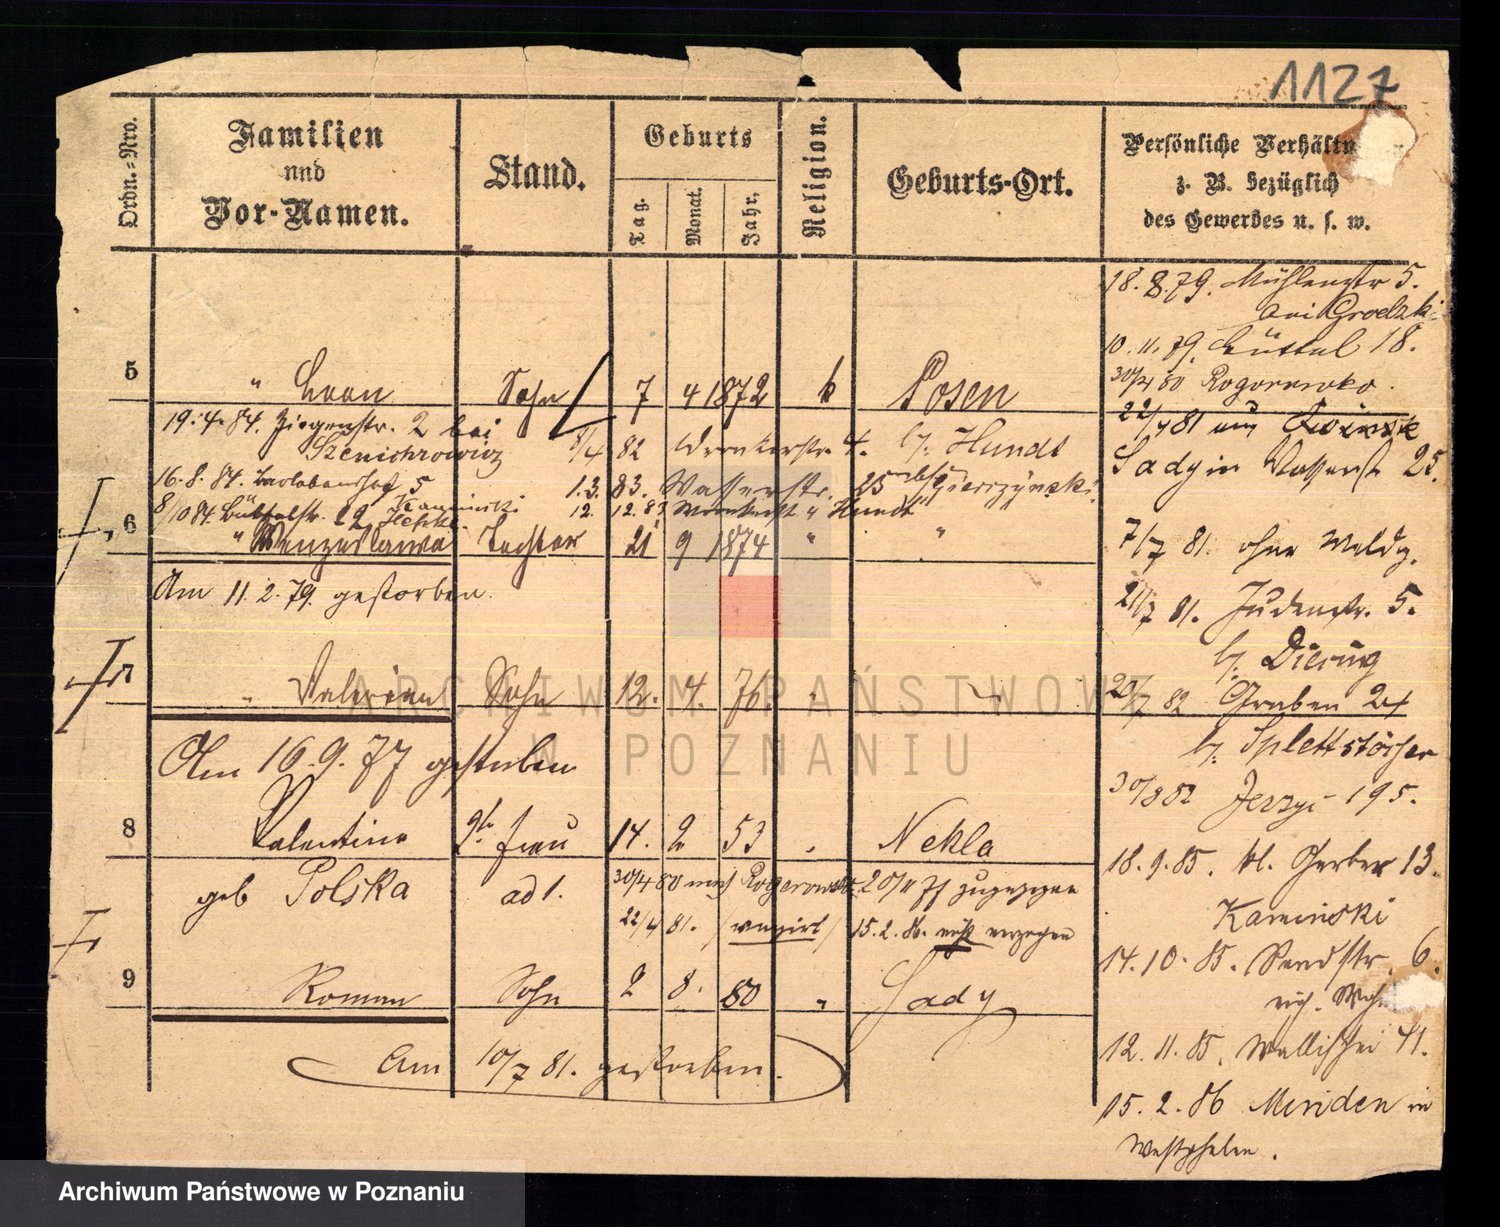 1127
Ordn.-Nro.
Familien
und
Vor-Namen.
Stand.
Geburts
Tag.
Monat.
Jahr.
Religion.
Geburts-Ort.
Persönliche Verhältn
z. B. bezüglich
des Gewerbes u. s. w.
18.8.79. Mühlenstr 5.
bei Grodzki
10.11.79. Büttel 18.
30/4 80 Rogorowko.
5 " Leon Sohn 7 4 1872 k Posen
19.4.84. Ziegenstr. 2 bei
8/4 82 Wronkerstr. 4. b/. Hundt
22/4 81
Sady in Wasserst 25.
16.8.84. 5
1.3. 83. Wasserstr. 25
8/10 84. Büttelstr. 22
12. 12.83 Hundt
6 " Wenzeslawa Tochter 21 9 1874 " "
Am 11.2.79. gestorben.
7/7 81. ohne Meldg.
21/7 81. Judenstr. 5.
b/.
7 " Valerian Sohn 12. 4. 76. " "
20/7 82 Graben 24
b/. Splettstösser
Am 16.9.77 gestorben
30/8 82 Jerzyce 195.
8 Valentine Frau 14. 2 53 " Nekla
geb Polska ad 1.
30/4 80 nach Rogorowko. 20/11 77 zugezogen
22/4 81. 15.2.86. verzogen
18.9.85. kl. Gerber 13.
Kaminski
14.10.85. Sandstr. 6.
9 Roman Sohn 2 8. 80 " Sady
12.11.85. Wallischei 41.
Am 10/7 81. gestorben.
15.2.86 Menden in
Westphalen.
ARCHIWUM PAŃSTWOWE
W POZNANIU
Archiwum Państwowe w Poznaniu